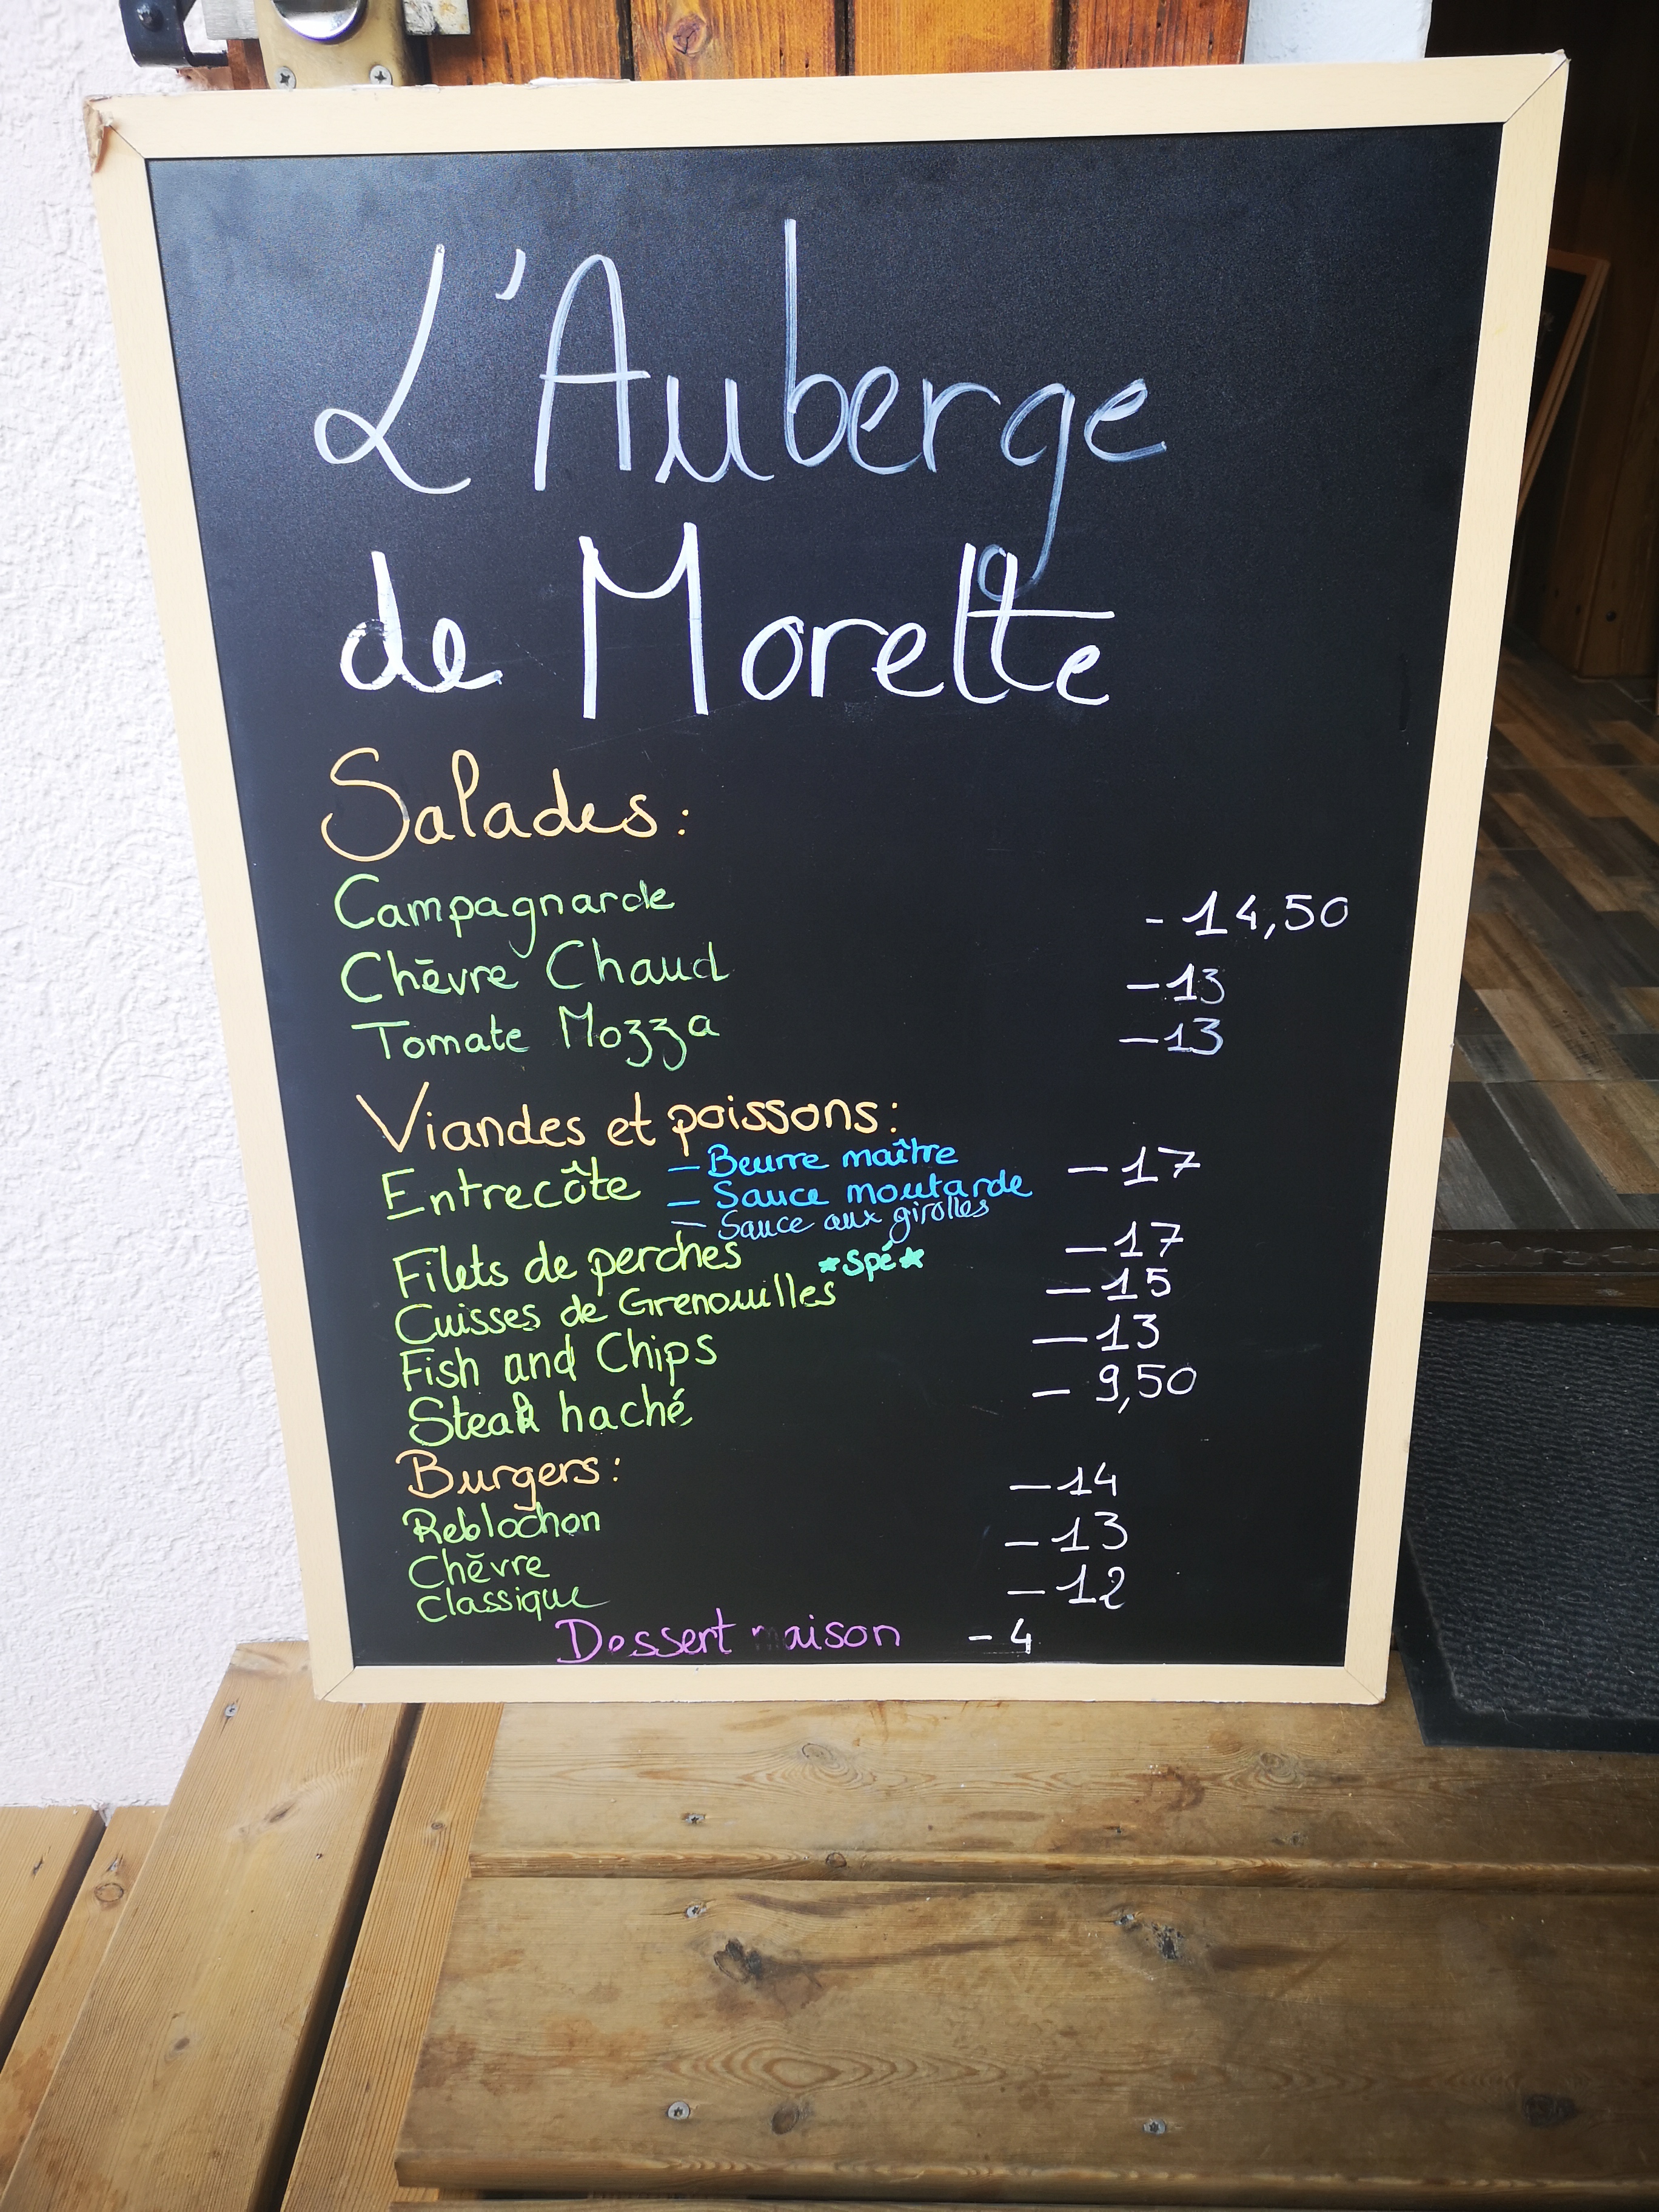 L'Auberge
de Morette
Salades:
Campagnarde - 14,50
Chèvre Chaud - 13
Tomate Mozza - 13
Viandes et poissons:
Entrecôte - Beurre maître - 17
- Sauce moutarde
- Sauce aux girolles
Filets de perches *Spé* - 17
Cuisses de Grenouilles - 15
Fish and Chips - 13
Steak haché - 9,50
Burgers:
Reblochon - 14
Chèvre - 13
Classique - 12
Dessert maison - 4